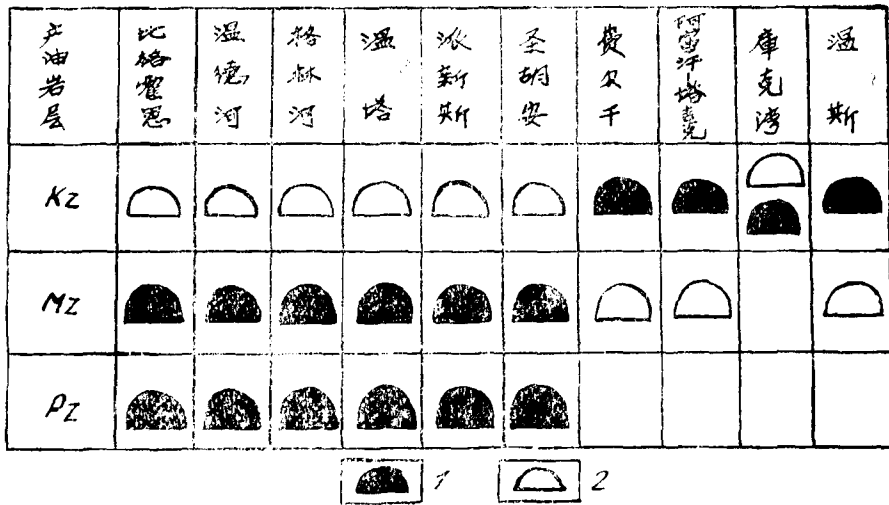 产油岩层
比格霍恩
温德河
格林河
温塔
派新斯
圣胡安
费尔干
阿富汗-塔吉克
库克湾
温斯
Kz
Mz
Pz
1
2